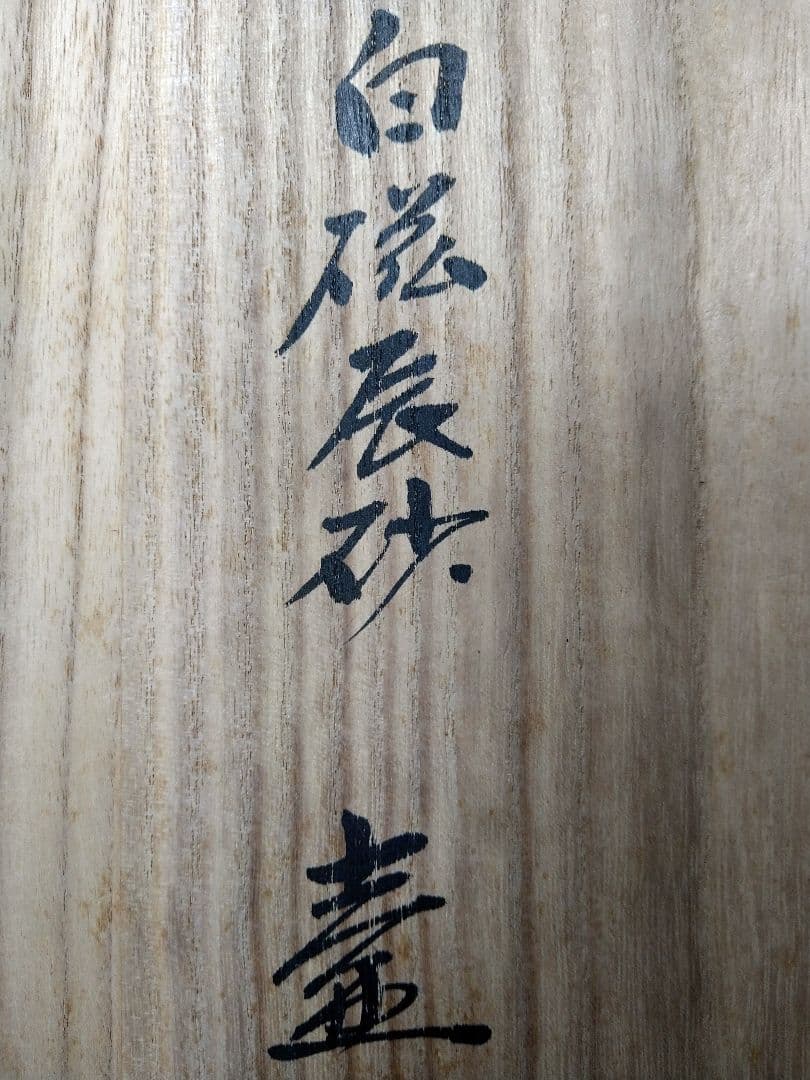 白磁辰砂 壷